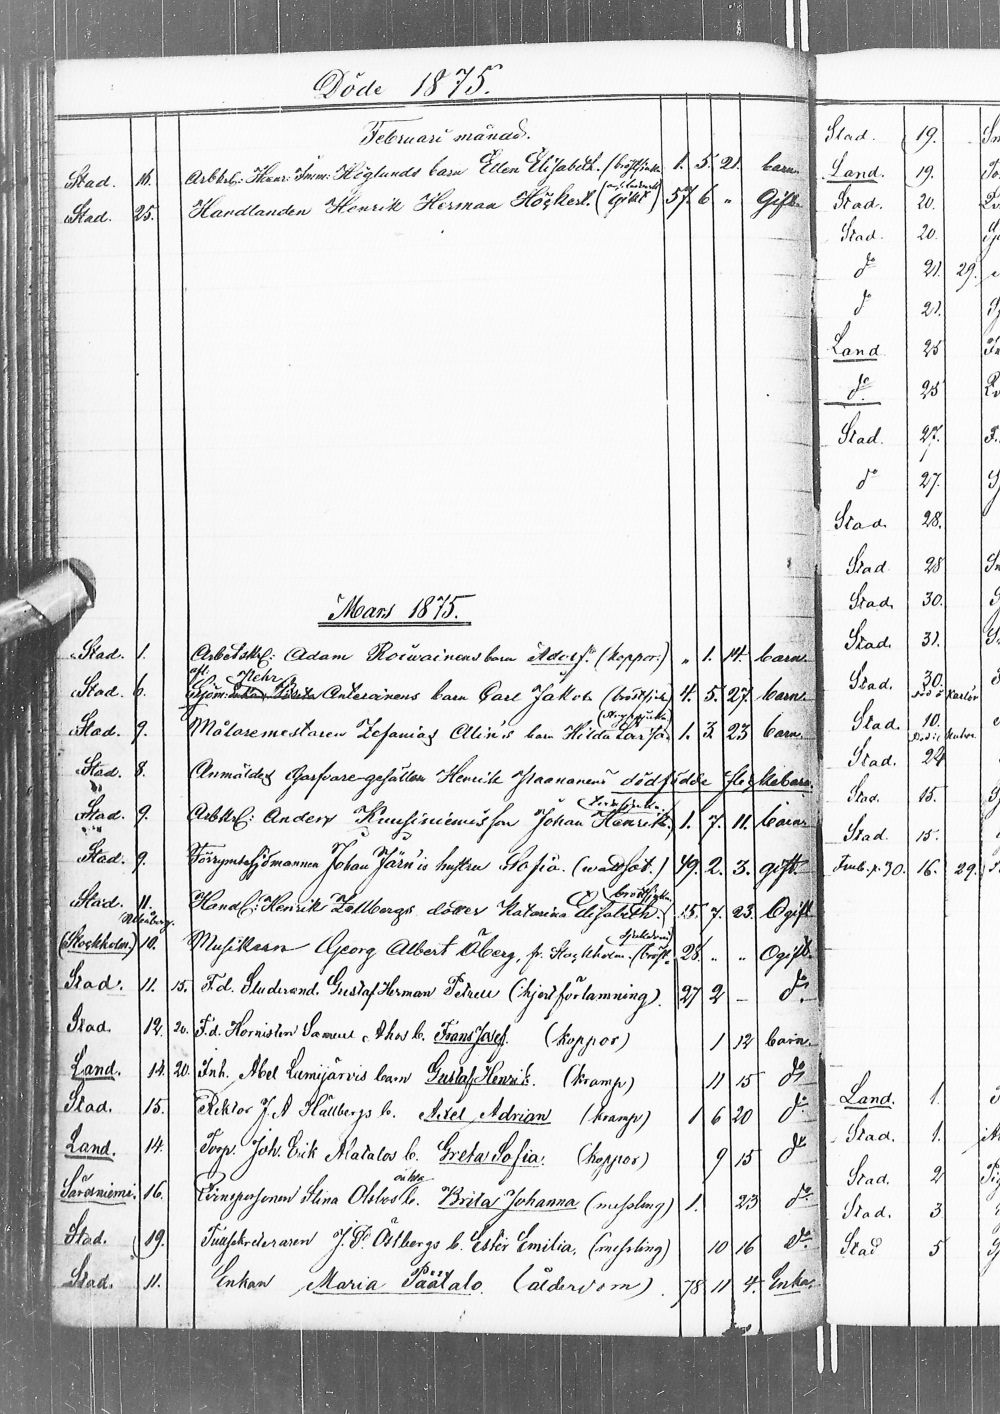 Döde 1875.
Februari månad.
Stad. 16. Arbkrl: Henr: Imm: Höglunds barn Ellen Elisabeth. (bröstsjukd. 1. 5. 21. barn
Stad. 25. Handlanden Henrik Herman Höckert. (Gikt) 57. 6 " Gift
Mars 1875.
Stad. 1. Arbetskrl: Adam Roiwainens barn Adolf. (koppor.) " 1. 14. barn
Stad. 6. Sjöm: Anterainens barn Carl Jakob. (bröstsjuk.) 4. 5. 27. barn
(Strypsjuka)
Stad. 9. Målaremestaren Zefanias Alinis barn Hilda 1. 3. 23 barn
Stad. 8. Anmäldes Garfvare-gesällen Henrik dödfödde flickebarn.
Stad. 9. Arbkrl: Anders Kuusiniemis son Johan Henrik. 1. 7. 11. barn
Stad. 9. Förrymde Sjömannen Johan Järn'is hustru Sofia. (wattsot.) 49. 2. 3. gift
bröstsjukd.
Stad. 11. Handl: Henrik Zellbergs dotter Katarina Elisabeth. 25. 7. 23. Ogift
(Stockholm.) 10. Musikern Georg Albert Öberg, fr. Stockholm. (bröst- 28. " " Ogift
Stad. 11. 15. F.d. Studerand. Gustaf Herman Petrell (hjertförlamning). 27 2 – do
Stad. 12. 20. F.d. Hornisten Samuel Ahos b. Frans Josef. (koppor) 1 12 barn
Land. 14. 20. Inh. Abel Lumijärvis barn Gustaf Henrik. (kramp) 11 15 do
Stad. 15. Rektor J. A Hällbergs b. Axel Adrian (kramp) 1 6 20 do
Land. 14. Torp. Joh. Erik Matalos b. Greta Sofia. (koppor) 9 15 do
oäkta
Säräisniemi. 16. Qvinspersonen Stina b. Brita Johanna (messling) 1. 23 do
Stad. 19. Tullsekreteraren J. F. Östbergs b. Ester Emilia. (messling) 10 16 do
Stad. 11. Enkan Maria Päätalo. (ålderdom). 78 11 4. Enka
Stad. 19.
Land. 19.
Stad. 20.
Stad. 20.
do 21. 29.
do 21.
Land 25
do 25
Stad. 27.
do 27.
Stad. 28.
Stad 28
Stad. 30.
Stad. 31.
Stad. 30. Karlö
Stad. 10.
Stad. 24
Stad. 15.
Stad 15.
30. 16. 29.
Land. 1.
Stad. 1.
Stad. 2
Stad. 3
Stad 5